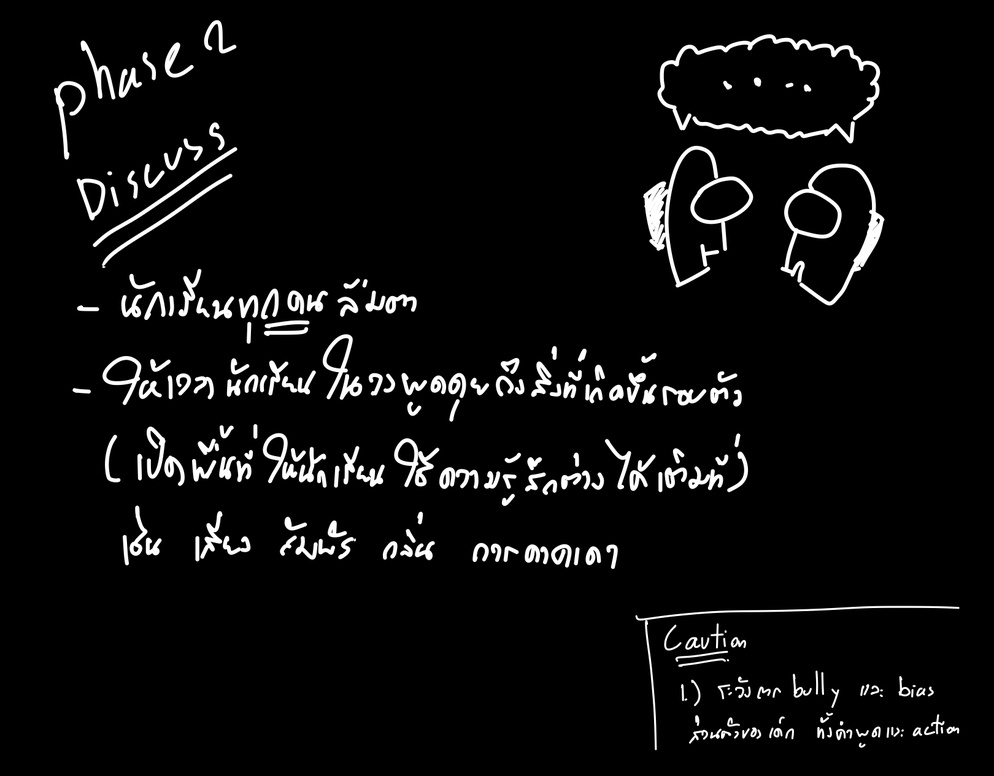 phase 2
Discuss
- นักเรียนทุกคน ลืมตา
- ให้เวลา นักเรียน ในวงพูดคุยถึงสิ่งที่เกิดขึ้นรอบตัว
(เปิดพื้นที่ ให้นักเรียน ใช้ความรู้สึกต่างๆ ได้เต็มที่)
เช่น เสียง สัมผัส กลิ่น การคาดเดา
Caution
1.) ระวังการ bully และ bias
ส่วนตัวของเด็ก ทั้งคำพูดและ action